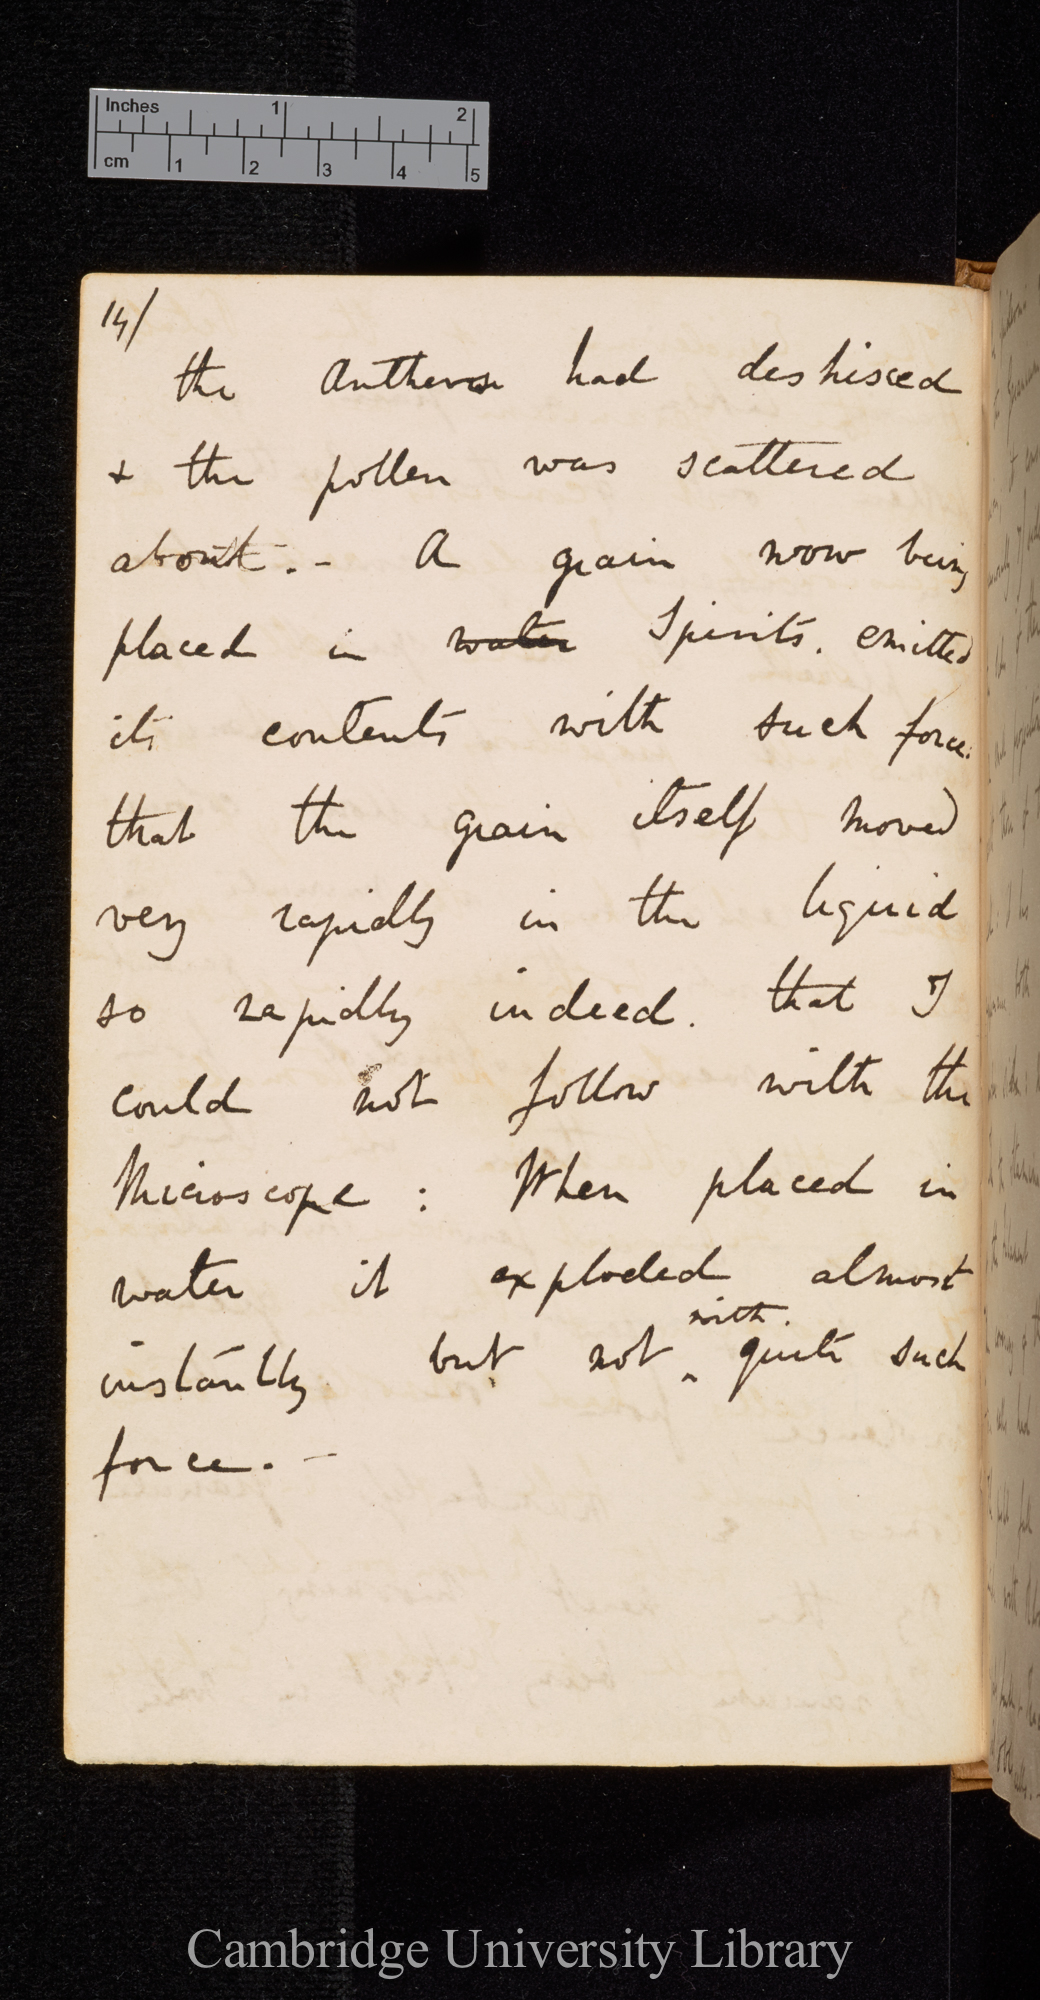 Inches 1 2
cm 1 2 3 4 5
14/
the Anthers had deshisced
& the pollen was scattered
about.- A grain now being
placed in water Spirits. emitted
its contents with such force.
that the grain itself moved
very rapidly in the liquid
so rapidly indeed. that I
could not follow with the
Microscope: When placed in
water it exploded almost
with.
instantly but not ^ quite such
force.-
Cambridge University Library